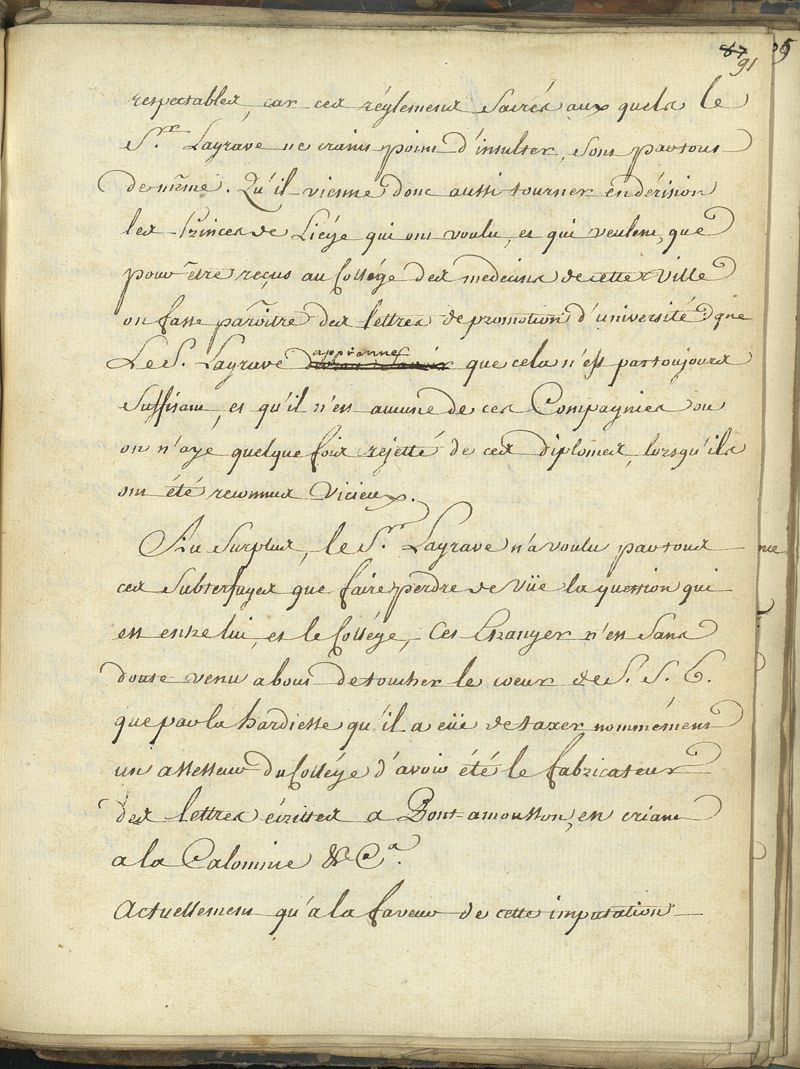 87 89
91
respectables, car ces réglements sacrés aux quels le
S.r Lagrave ne craint point d'insulter, sont partout
de même. Qu'il vienne donc aussi tourner en dérision
les Princes de Liége qui ont voulu, et qui veulent, que
pour être reçus au Collége des medecins de cette Ville
on fasse paroître des lettres de promotion d'université : que
Le S. Lagrave apprenne que cela n'est pas toujours
suffisant, et qu'il n'est aucune de ces Compagnies ou
on n'aye quelque fois rejetté de ces diplomes, lorsqu'ils
ont été reconnus Vicieux.
Au surplus, le S.r Lagrave n'a voulu par tous
ces subterfuges que faire perdre de vüe la question qui
est entre lui, et le Collége, Cet Etranger n'est sans
doute venu a bout de toucher le coeur de S. S. E.
que par la hardiesse qu'il a eüe de taxer nommément
un assesseur du Collége d'avoir été le fabricateur
des lettres écrittes a Pont-amousson, en criant
a la Calomnie & Ca.
Actuellement qu'a la faveur de cette imputation